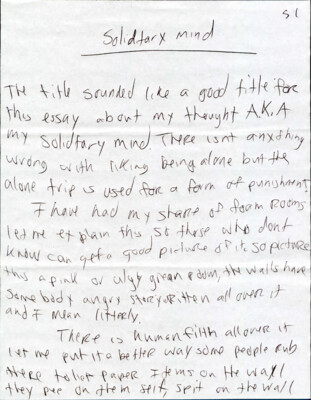 S1
Solidtary mind
The title sounded like a good title for
this essay about my thought A.K.A
my solidtary mind. There isnt anything
wrong with liking being alone but the
alone trip is used for a form of punishment.
I have had my share of foam rooms
let me explain this so those who dont
know can get a good picture of it, so picture
this a pink or ugly green room, the walls have
some body angry story written all over it
and I mean litterly.
There is human filth all over it
let me put it a better way some people rub
there toilot paper items on the wall
they pee on them self, spit on the wall